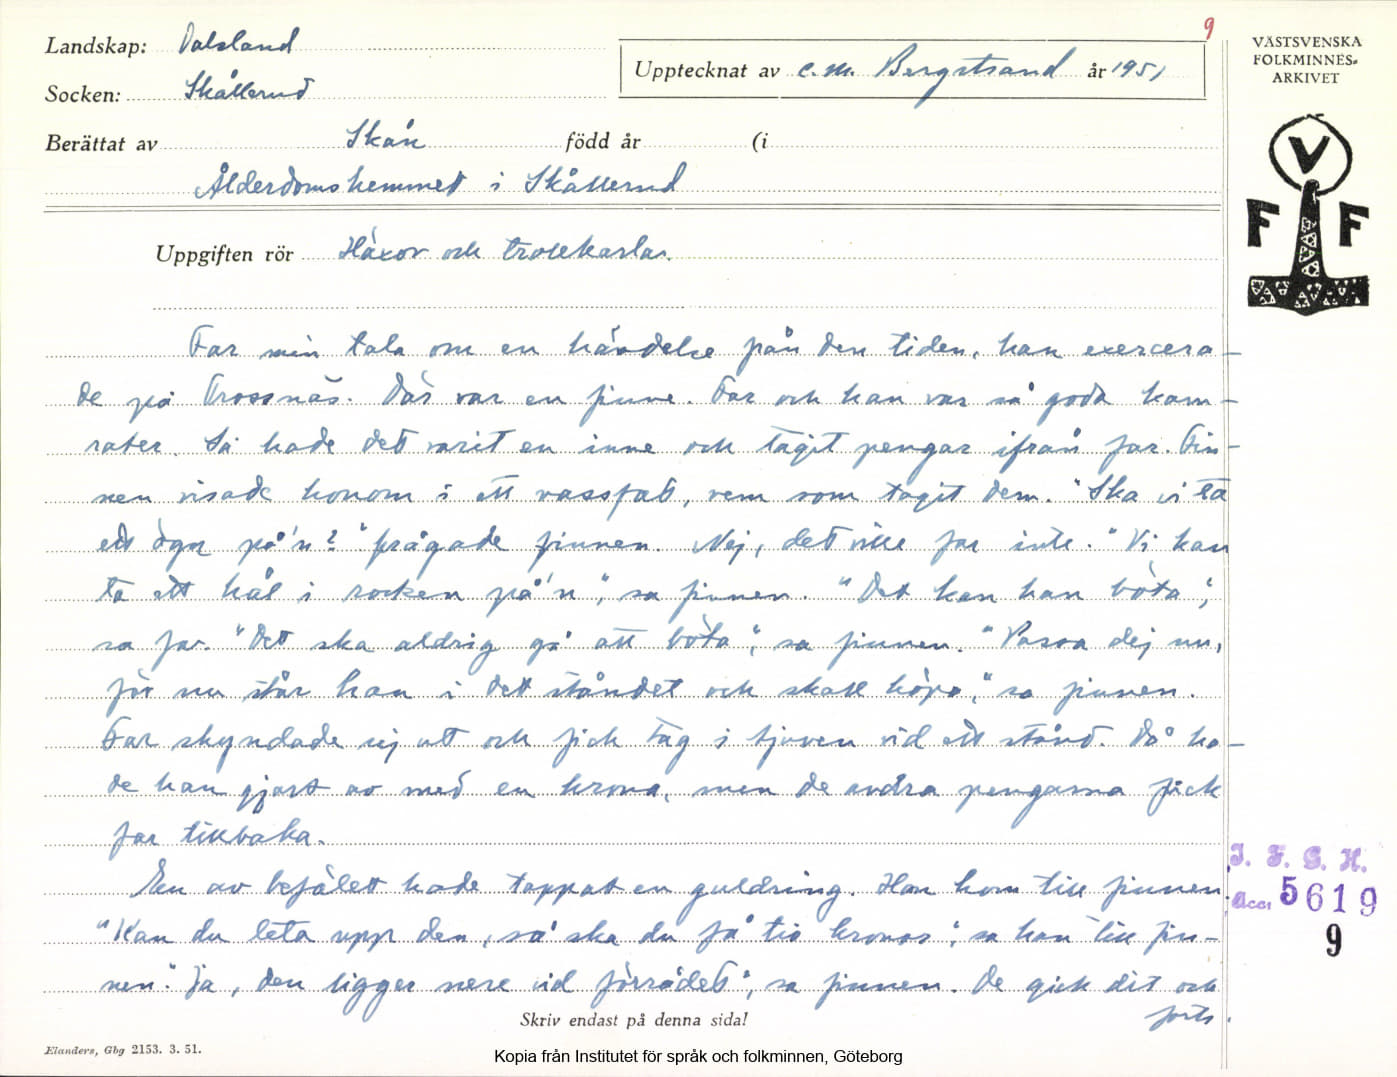 9
Landskap: Dalsland
Upptecknat av C. M. Bergstrand år 1951
Socken: Skållerud
VÄSTSVENSKA
FOLKMINNES-
ARKIVET
Berättat av Skån född år (i
Ålderdomshemmet i Skållerud
V
F F
Uppgiften rör Häxor och trollkarlar.
Far min tala om en händelse från den tiden, han exercera-
de på Trossnäs. Där var en finne. Far och han var så goda kam-
rater. Så hade det varit en inne och tagit pengar ifrån far. Fin-
nen visade honom i ett vassfat, vem som tagit dem. "Ska vi ta
ett öga på'n?" frågade finnen. Nej, det ville far inte. "Vi kan
ta ett hål i rocken på'n", sa finnen. "Det kan han böta",
sa far. "Det ska aldrig gå att böta", sa finnen. "Passa dej nu,
för nu står han i det ståndet och skall köpa", sa finnen.
Far skyndade sig ut och fick tag i tjuven vid ett stånd. Då ha-
de han gjort av med en krona, men de andra pengarna fick
far tillbaka.
En av befälet hade tappat en guldring. Han kom till finnen
"Kan du leta upp den, så ska du få tio kronor", sa han till fin-
nen. "Ja, den ligger nere vid förrådet", sa finnen. De gick dit och
forts.
I. F. G. H.
Acc. 5619
9
Skriv endast på denna sida!
Elanders, Gbg 2153. 3. 51.
Kopia från Institutet för språk och folkminnen, Göteborg